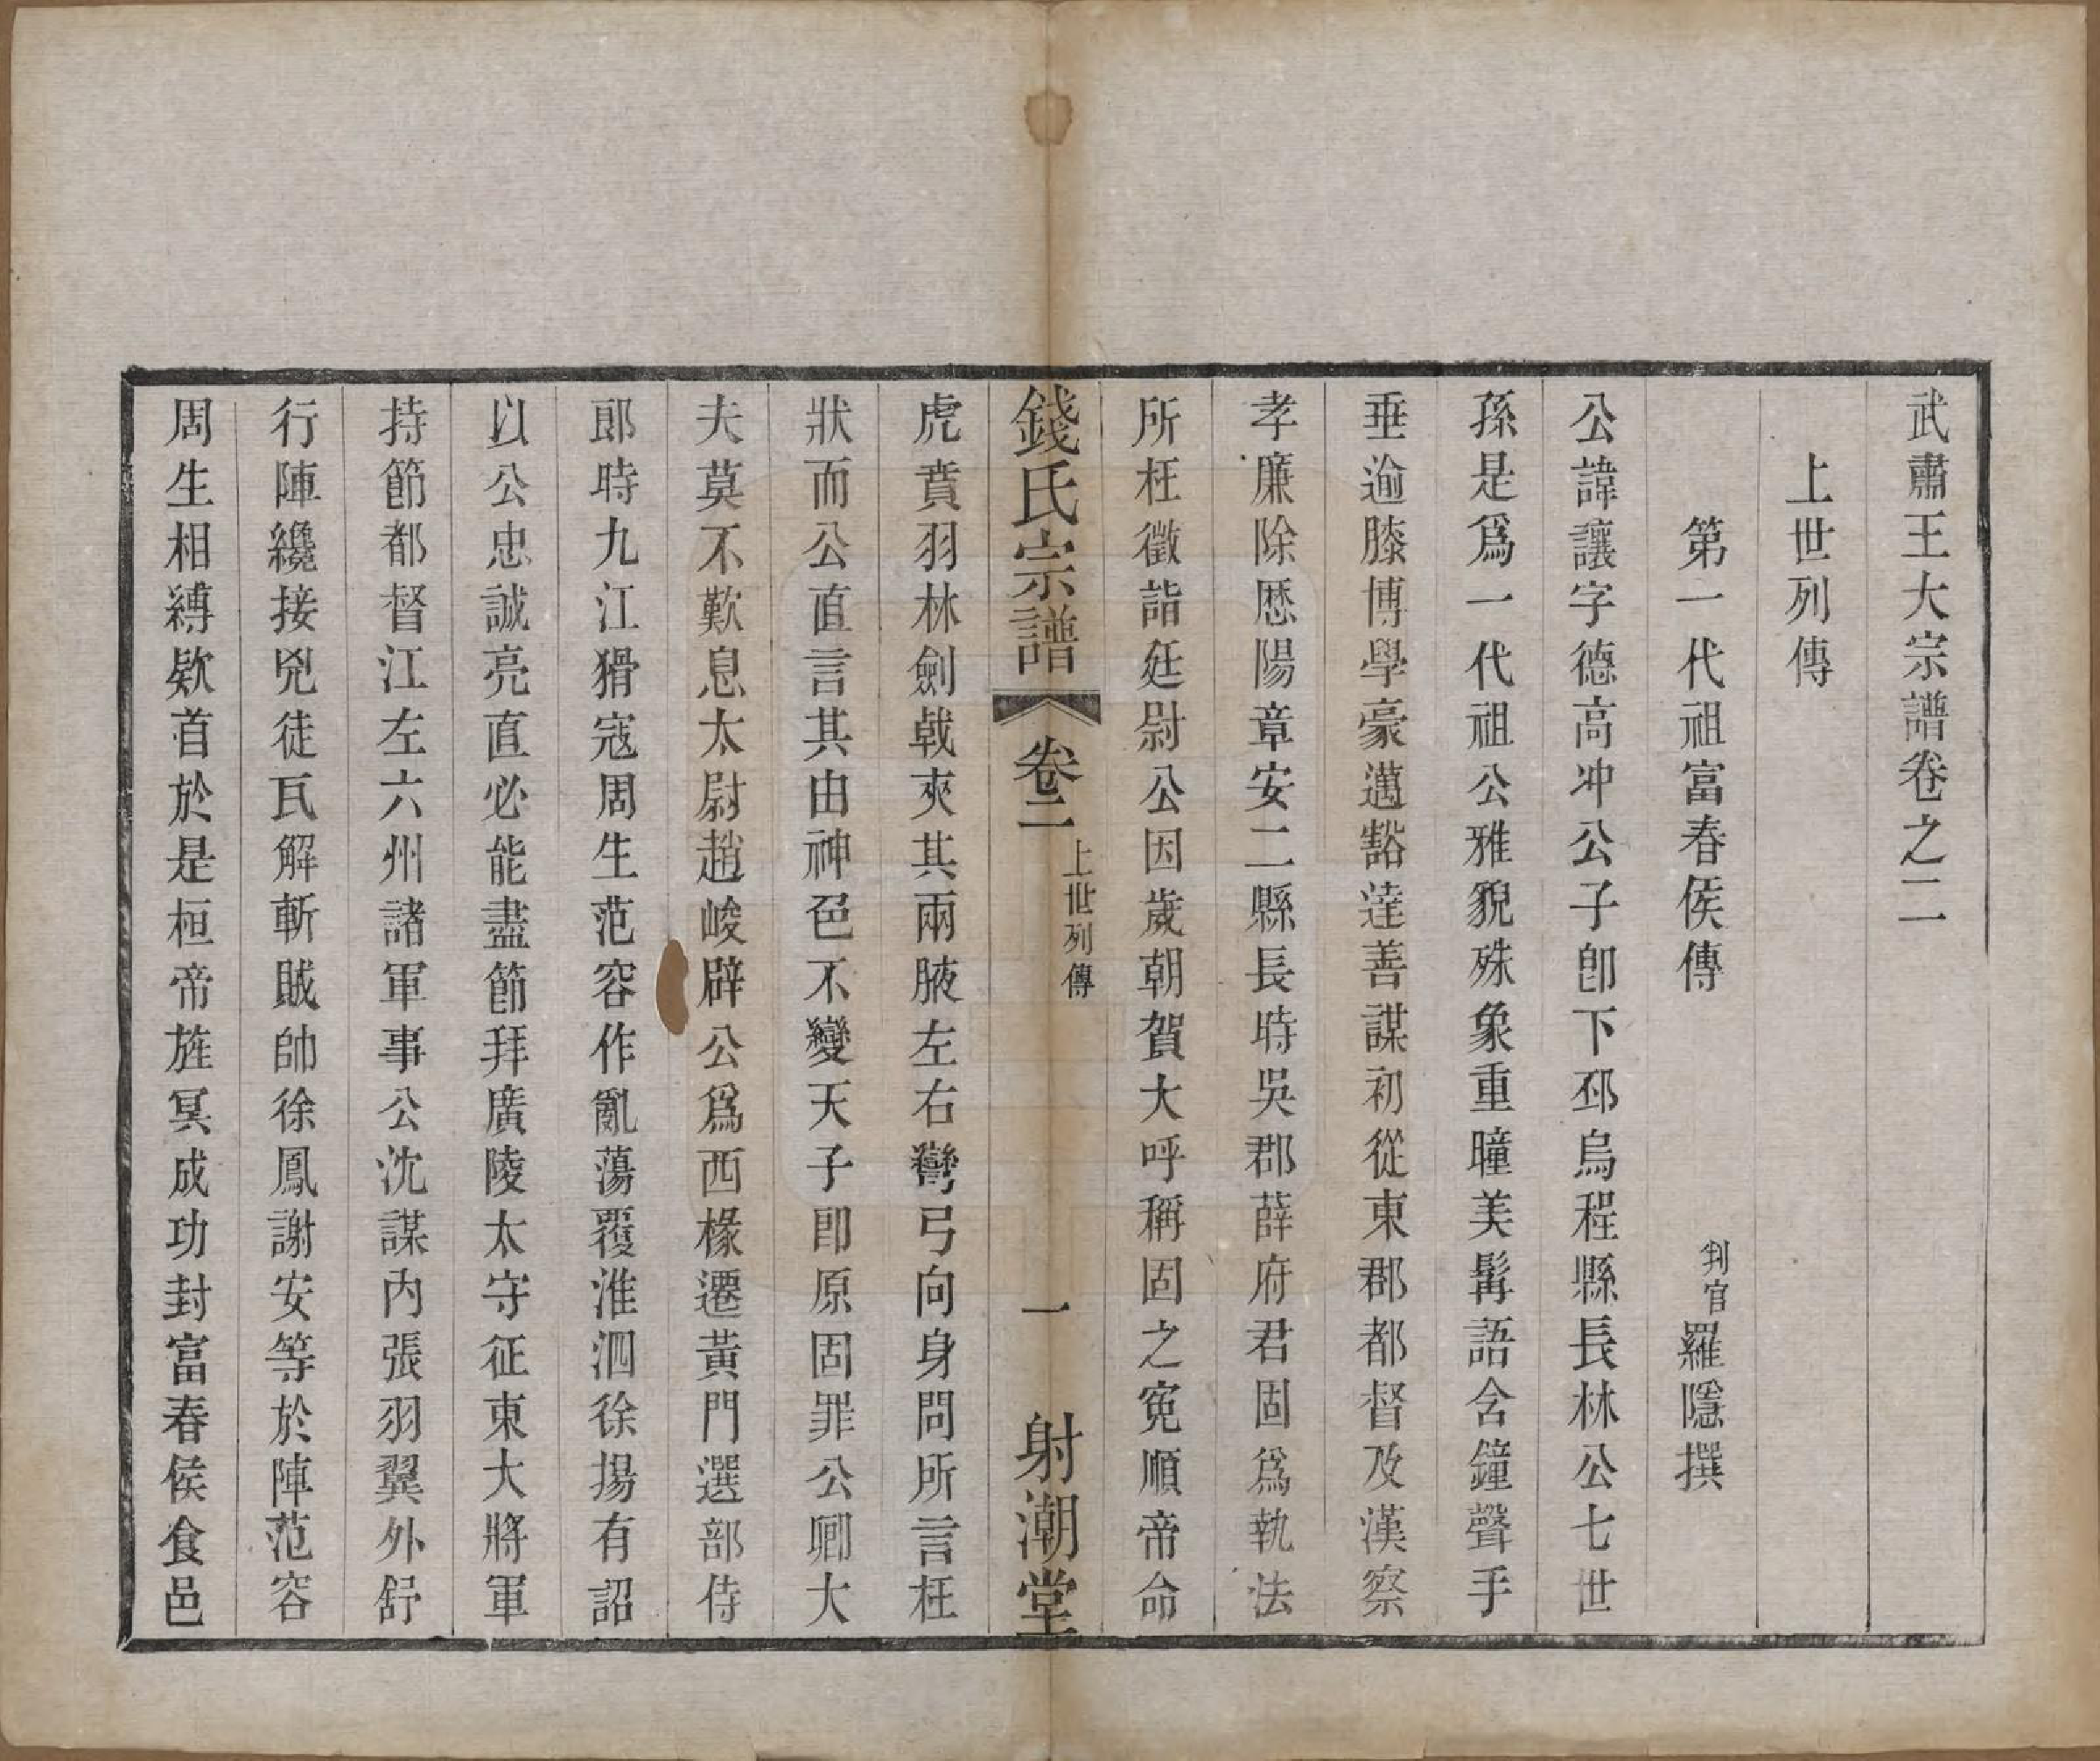 武肅王大宗譜卷之二
上世列傳
第一代祖富春侯傳 判官羅隱撰
公諱讓字德高冲公子卽下邳烏程縣長林公七世
孫是爲一代祖公雅貌殊象重瞳美髯語含鐘聲手
垂逾膝博學豪邁豁達善謀初從東郡都督及漢察
孝廉除歷陽章安二縣長時吳郡薛府君固爲執法
所枉徵詣廷尉公因歲朝賀大呼稱固之寃順帝命
錢氏宗譜 卷二 上世列傳 一 射潮堂
虎賁羽林劍戟夾其兩腋左右彎弓向身問所言枉
狀而公直言其由神色不變天子卽原固罪公卿大
夫莫不歎息太尉趙峻辟公爲西椽遷黃門選部侍
郎時九江猾寇周生范容作亂蕩覆淮泗徐揚有詔
以公忠誠亮直必能盡節拜廣陵太守征東大將軍
持節都督江左六州諸軍事公沈謀內張羽翼外舒
行陣纔接兇徒瓦解斬賊帥徐鳳謝安等於陣范容
周生相縛欵首於是桓帝旌冥成功封富春侯食邑